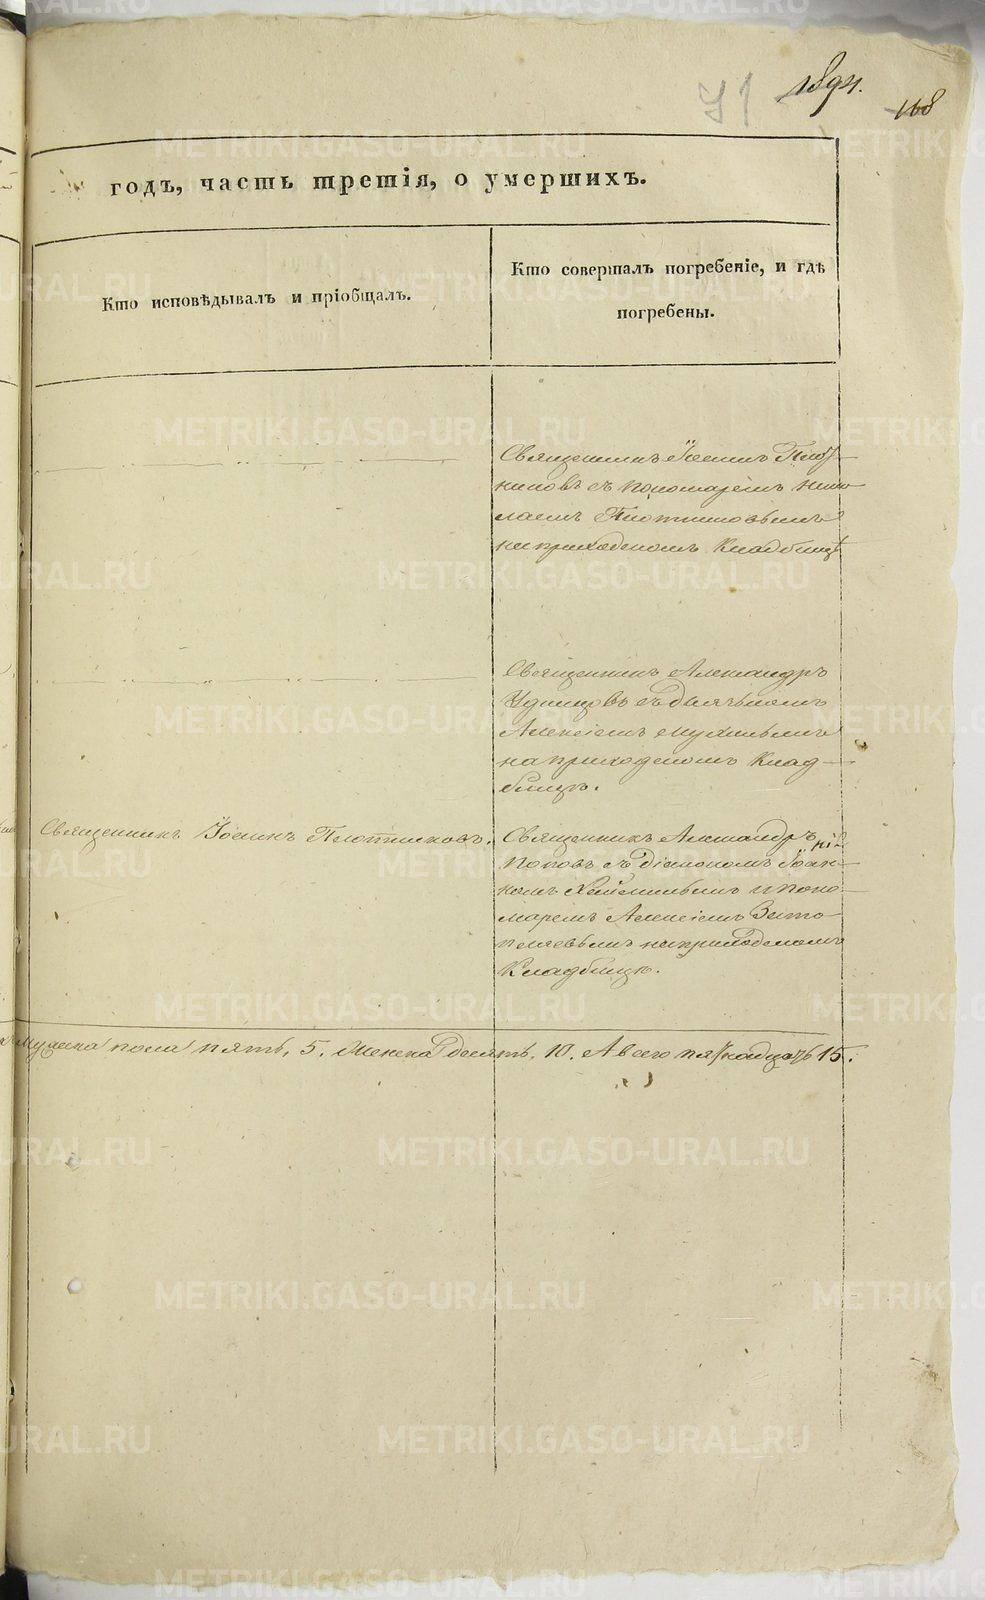 1894.
71
168
годъ, часть третія, о умершихъ.
Кто исповѣдывалъ и пріобщалъ.
Кто совершалъ погребеніе, и гдѣ
погребены.
Священникъ Іоаннъ Плот-
никовъ съ пономаремъ Нико
лаемъ Плотниковымъ
на приходскомъ Кладбищѣ
Священникъ Александръ
Удинцовъ съ дьячькомъ
Алексіемъ
на приходскомъ Клад-
бищѣ.
Священникъ Іоаннъ Плотниковъ.
Священникъ Александръ
Поповъ съ діакономъ Іоан-
номъ и поно-
маремъ Алексіемъ
на приходскомъ
Кладбищѣ.
Мужеска пола пять, 5. Женска десять, 10. А всего пятнадцать 15.
METRIKI.GASO-URAL.RU